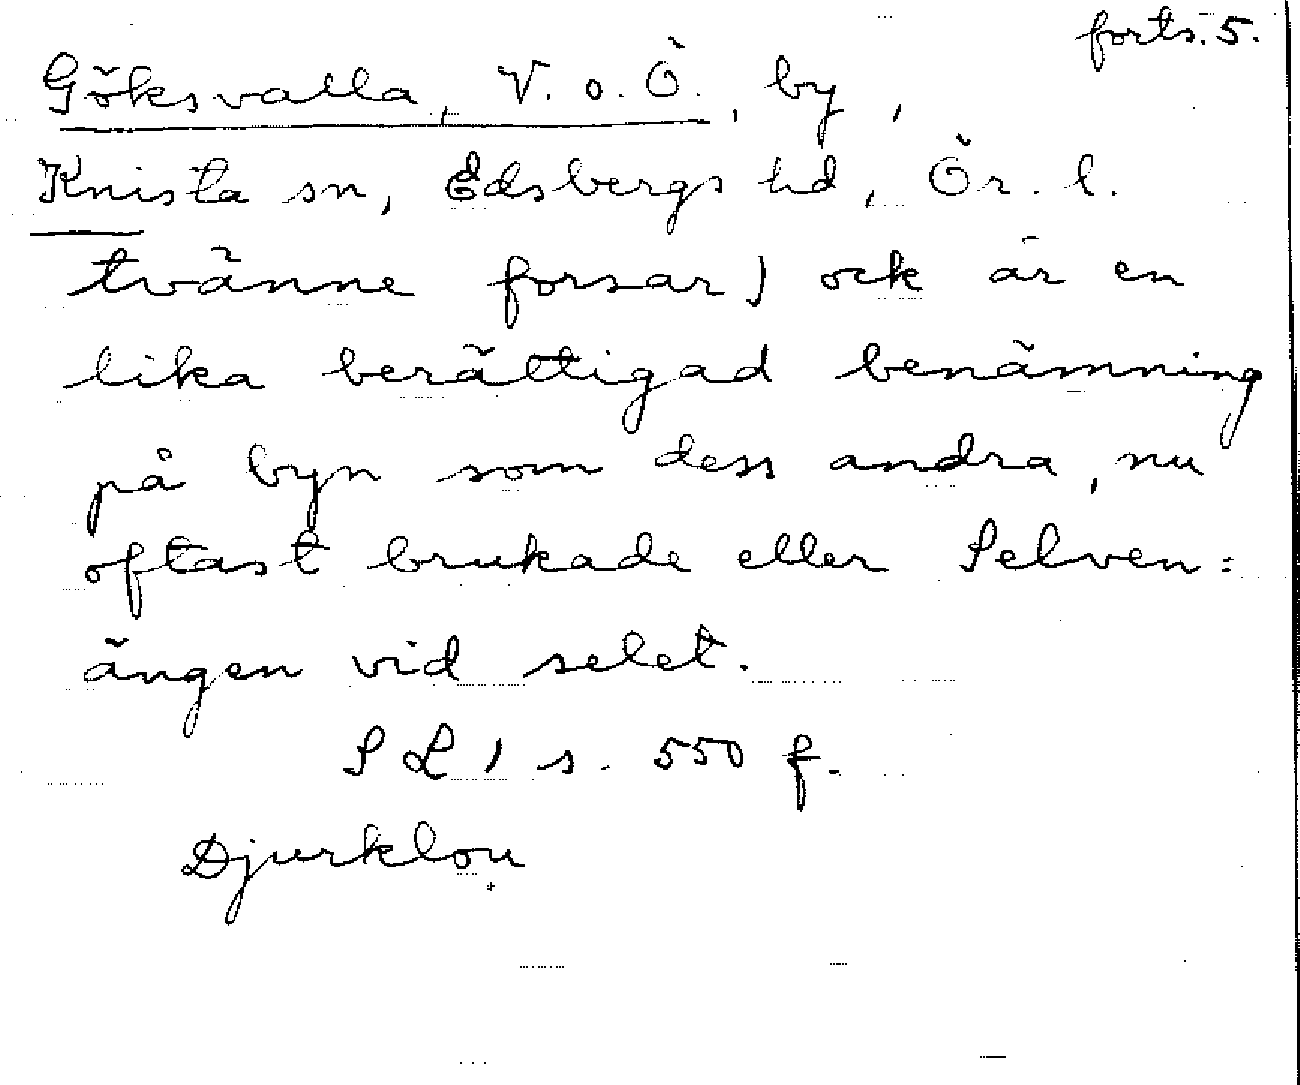 forts. 5.
Göksvalla, V. o. Ö., by,
Knista sn, Edsbergs hd, Ör. l.
tvänne forsar) ock är en
lika berättigad benämning
på byn som dess andra, nu
oftast brukade eller Selven=
ängen vid selet.
SL 1 s. 550 f.
Djurklou